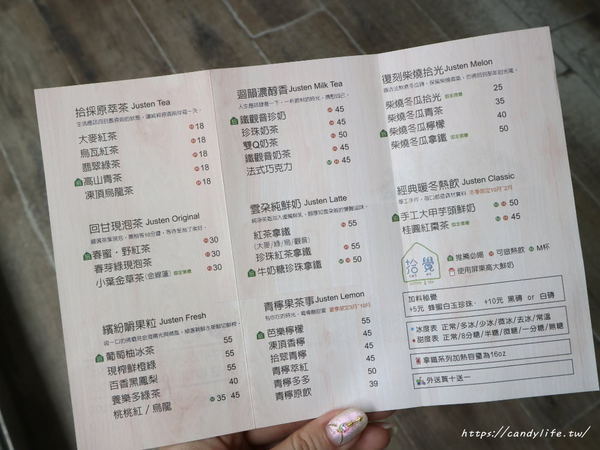 拾採原萃茶 Justen Tea
大麥紅茶 18
烏瓦紅茶 18
翡翠綠茶 18
高山青茶 18
凍頂烏龍茶 18
回甘現泡茶 Justen Original
春蜜・野紅茶 30
春芽綠現泡茶 30
小葉金草茶(金線蓮) 30
繽紛嚼果粒 Justen Fresh
葡萄柚冰茶 55
現榨鮮橙綠 55
百香黑鳳梨 40
養樂多綠茶 45
桃桃紅 / 烏龍 35 45
迴韻濃醇香 Justen Milk Tea
鐵觀音珍奶 45
珍珠奶茶 45
雙Q奶茶 50
鐵觀音奶茶 45
法式巧克力 45
雲朵純鮮奶 Justen Latte
紅茶拿鐵 55
(大麥/綠/烏/觀音)
珍珠紅茶拿鐵 55
牛奶糖珍珠拿鐵 50
青檸果茶事 Justen Lemon
芭樂檸檬 55
凍頂香檸 55
拾翠青檸 55
青檸萃紅 50
青檸多多 50
青檸原飲 39
復刻柴燒拾光 Justen Melon
柴燒冬瓜拾光 25
柴燒冬瓜青茶 35
柴燒冬瓜檸檬 40
柴燒冬瓜拿鐵 50
經典暖冬熱飲 Justen Classic
手工大甲芋頭鮮奶 50
桂圓紅棗茶 45
拾覺
推薦必喝 可做熱飲 M杯
使用屏東高大鮮奶
加料秘覺
+5元 蜂蜜白玉珍珠、 +10元 黑磚 or 白磚
冰度表 正常/多冰/少冰/微冰/去冰/常溫
甜度表 正常/8分糖/半糖/微糖/一分糖/無糖
拿鐵系列加熱容量為16oz
外送買十送一
https://candylife.tw/